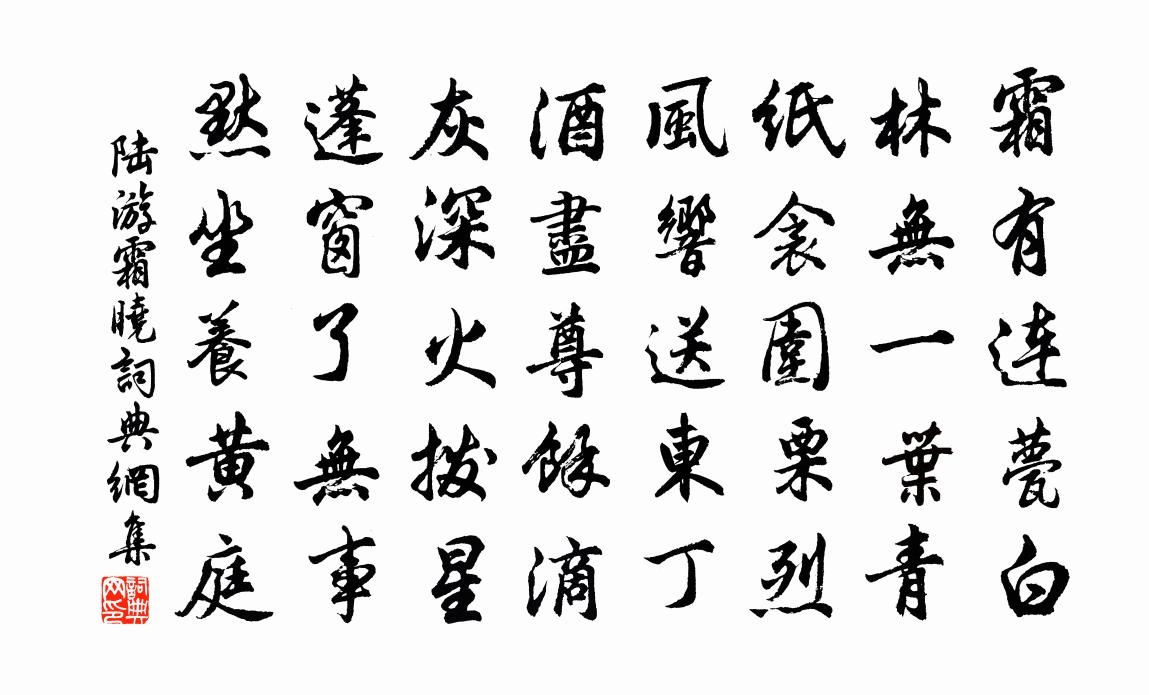 霜有连甍白
林無一葉青
紙衾圍栗烈
風響送東丁
酒盡尊餘滴
灰深火撥星
蓬窗了無事
默坐養黄庭
陆游霜曉詞典網集
詞典